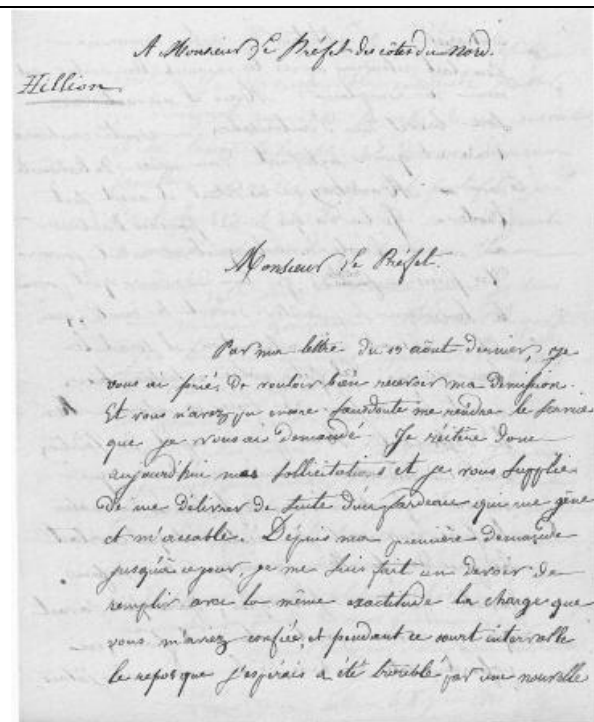 A Monsieur Le Préfet des côtes du Nord.
Hillion
Monsieur Le Préfet.
Par ma lettre du 15 août dernier, je
vous ai priés De vouloir bien recevoir ma Démission.
Et vous n'avez pu encore sansdoute me rendre le service
que je vous ai demandé. Je réitère donc
aujourd'hui mes sollicitations et je vous supplie
De me Délivrer de suite d'un fardeau qui me gêne
et m'accable. Depuis ma première demande
jusqu'à ce jour, je me suis fait un Devoir de
remplir avec la même exactitude la charge que
vous m'avez confiée, et pendant ce court intervalle
le repos que j'espérais a été troublé par une nouvelle